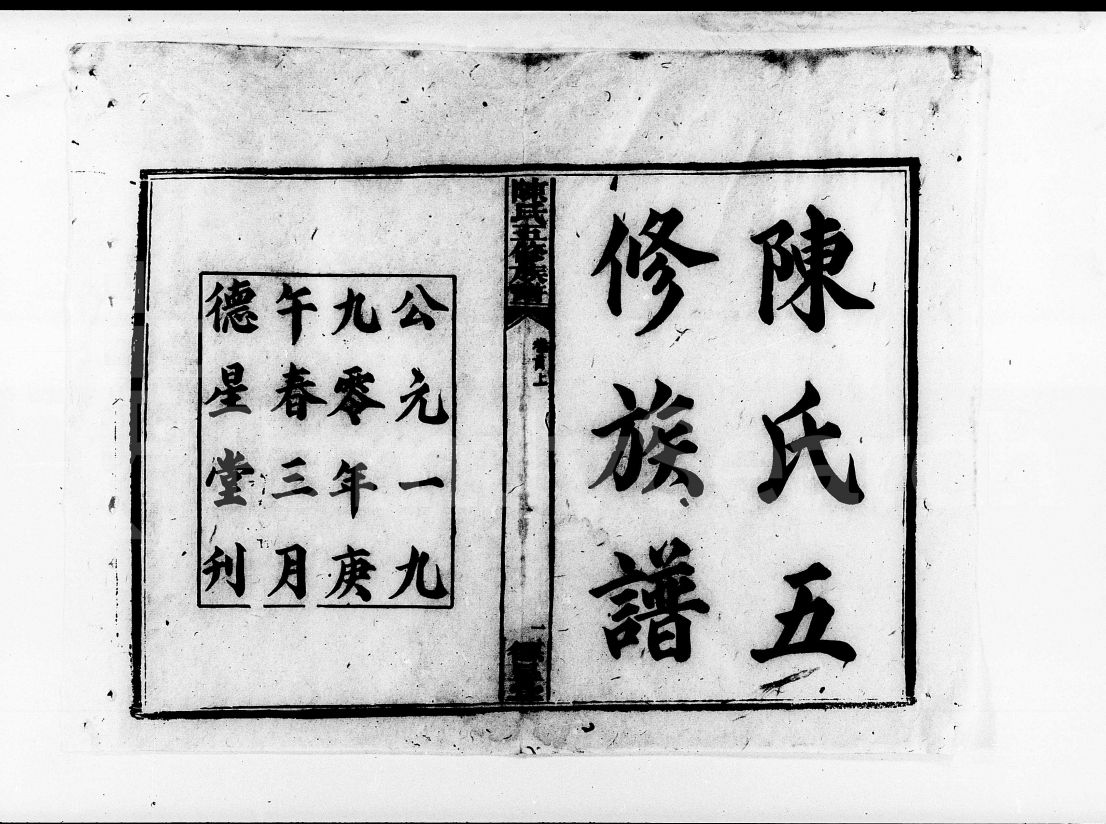 陳氏五
修族譜
陳氏五修族譜
卷首上
一
德星堂
公元一九
九零年庚
午春三月
德星堂刋